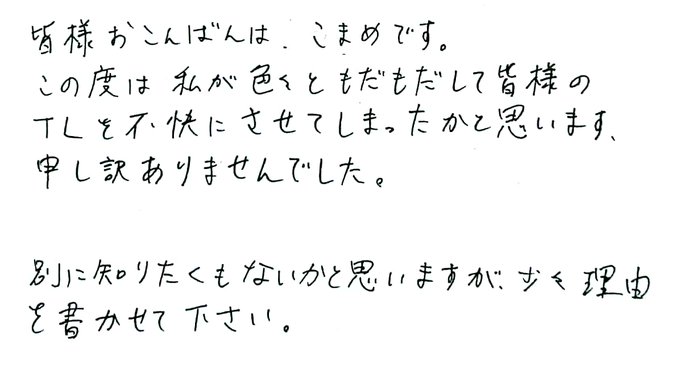 皆様おこんばんは、こまめです。
この度は私が色々ともだもだして皆様の
TLを不快にさせてしまったかと思います、
申し訳ありませんでした。
別に知りたくもないかと思いますが、少々理由
を書かせて下さい。